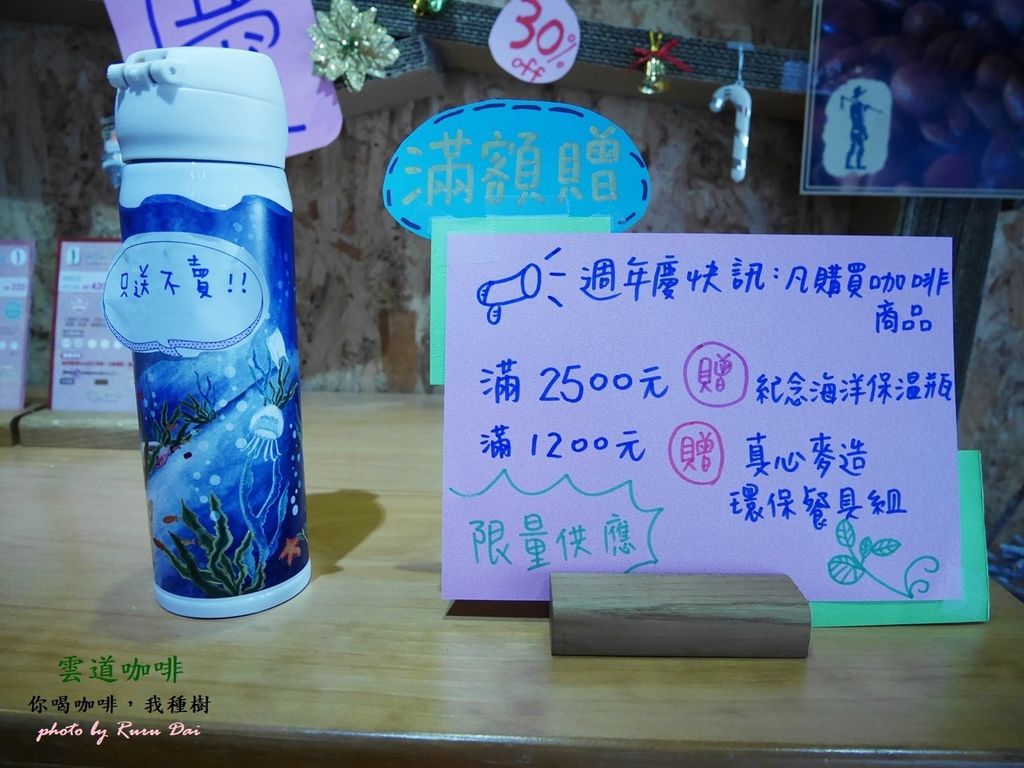 30%
off
滿額贈
只送不賣!!
週年慶快訊:凡購買咖啡
商品
滿 2500元 贈 紀念海洋保溫瓶
滿 1200元 贈 真心麥造
環保餐具組
限量供應
雲道咖啡
你喝咖啡，我種樹
photo by Ruru Dai